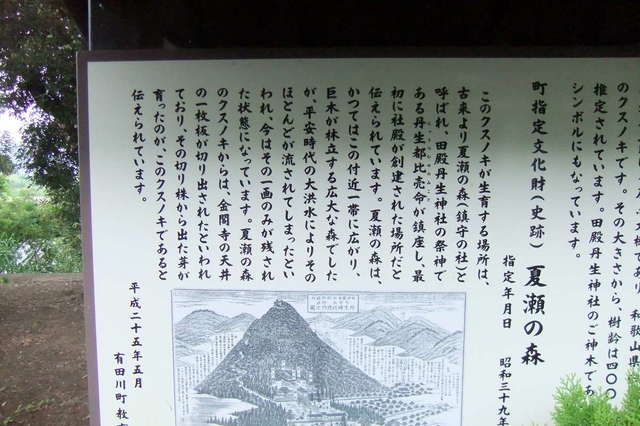 大樹であり、和歌山県
のクスノキです。その大きさから、樹齢は四〇〇
推定されています。田殿丹生神社のご神木であ
シンボルにもなっています。
町指定文化財(史跡) 夏瀬の森
指定年月日 昭和三十九年
このクスノキが生育する場所は、
古来より夏瀬の森(鎮守の社)と
呼ばれ、田殿丹生神社の祭神で
ある丹生都比売命が鎮座し、最
初に社殿が創建された場所だと
伝えられています。夏瀬の森は、
かつてはこの付近一帯に広がり、
巨木が林立する広大な森でした
が、平安時代の大洪水によりその
ほとんどが流されてしまったとい
われ、今はその一画のみが残され
た状態になっています。夏瀬の森
のクスノキからは、金閣寺の天井
の一枚板が切り出されたといわれ
ており、その切り株から出た芽が
育ったのが、このクスノキであると
伝えられています。
平成二十五年五月
有田川町教